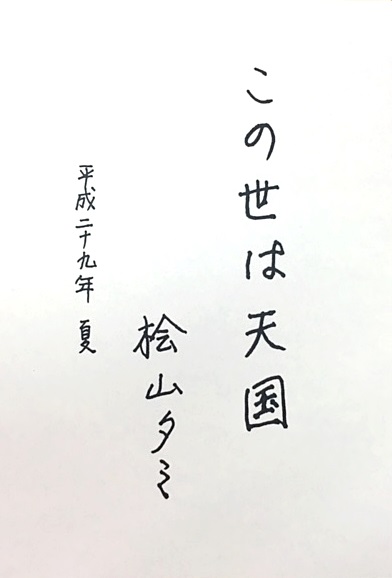 この世は天国
桧山タミ
平成二十九年 夏